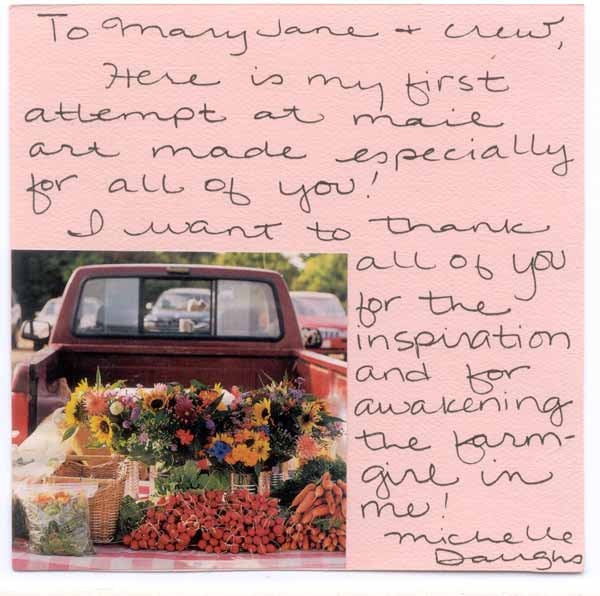 To Mary Jane + crew,
Here is my first
attempt at mail
art made especially
for all of you!
I want to thank
all of you
for the
inspiration
and for
awakening
the farm-
girl in
me!
Michelle